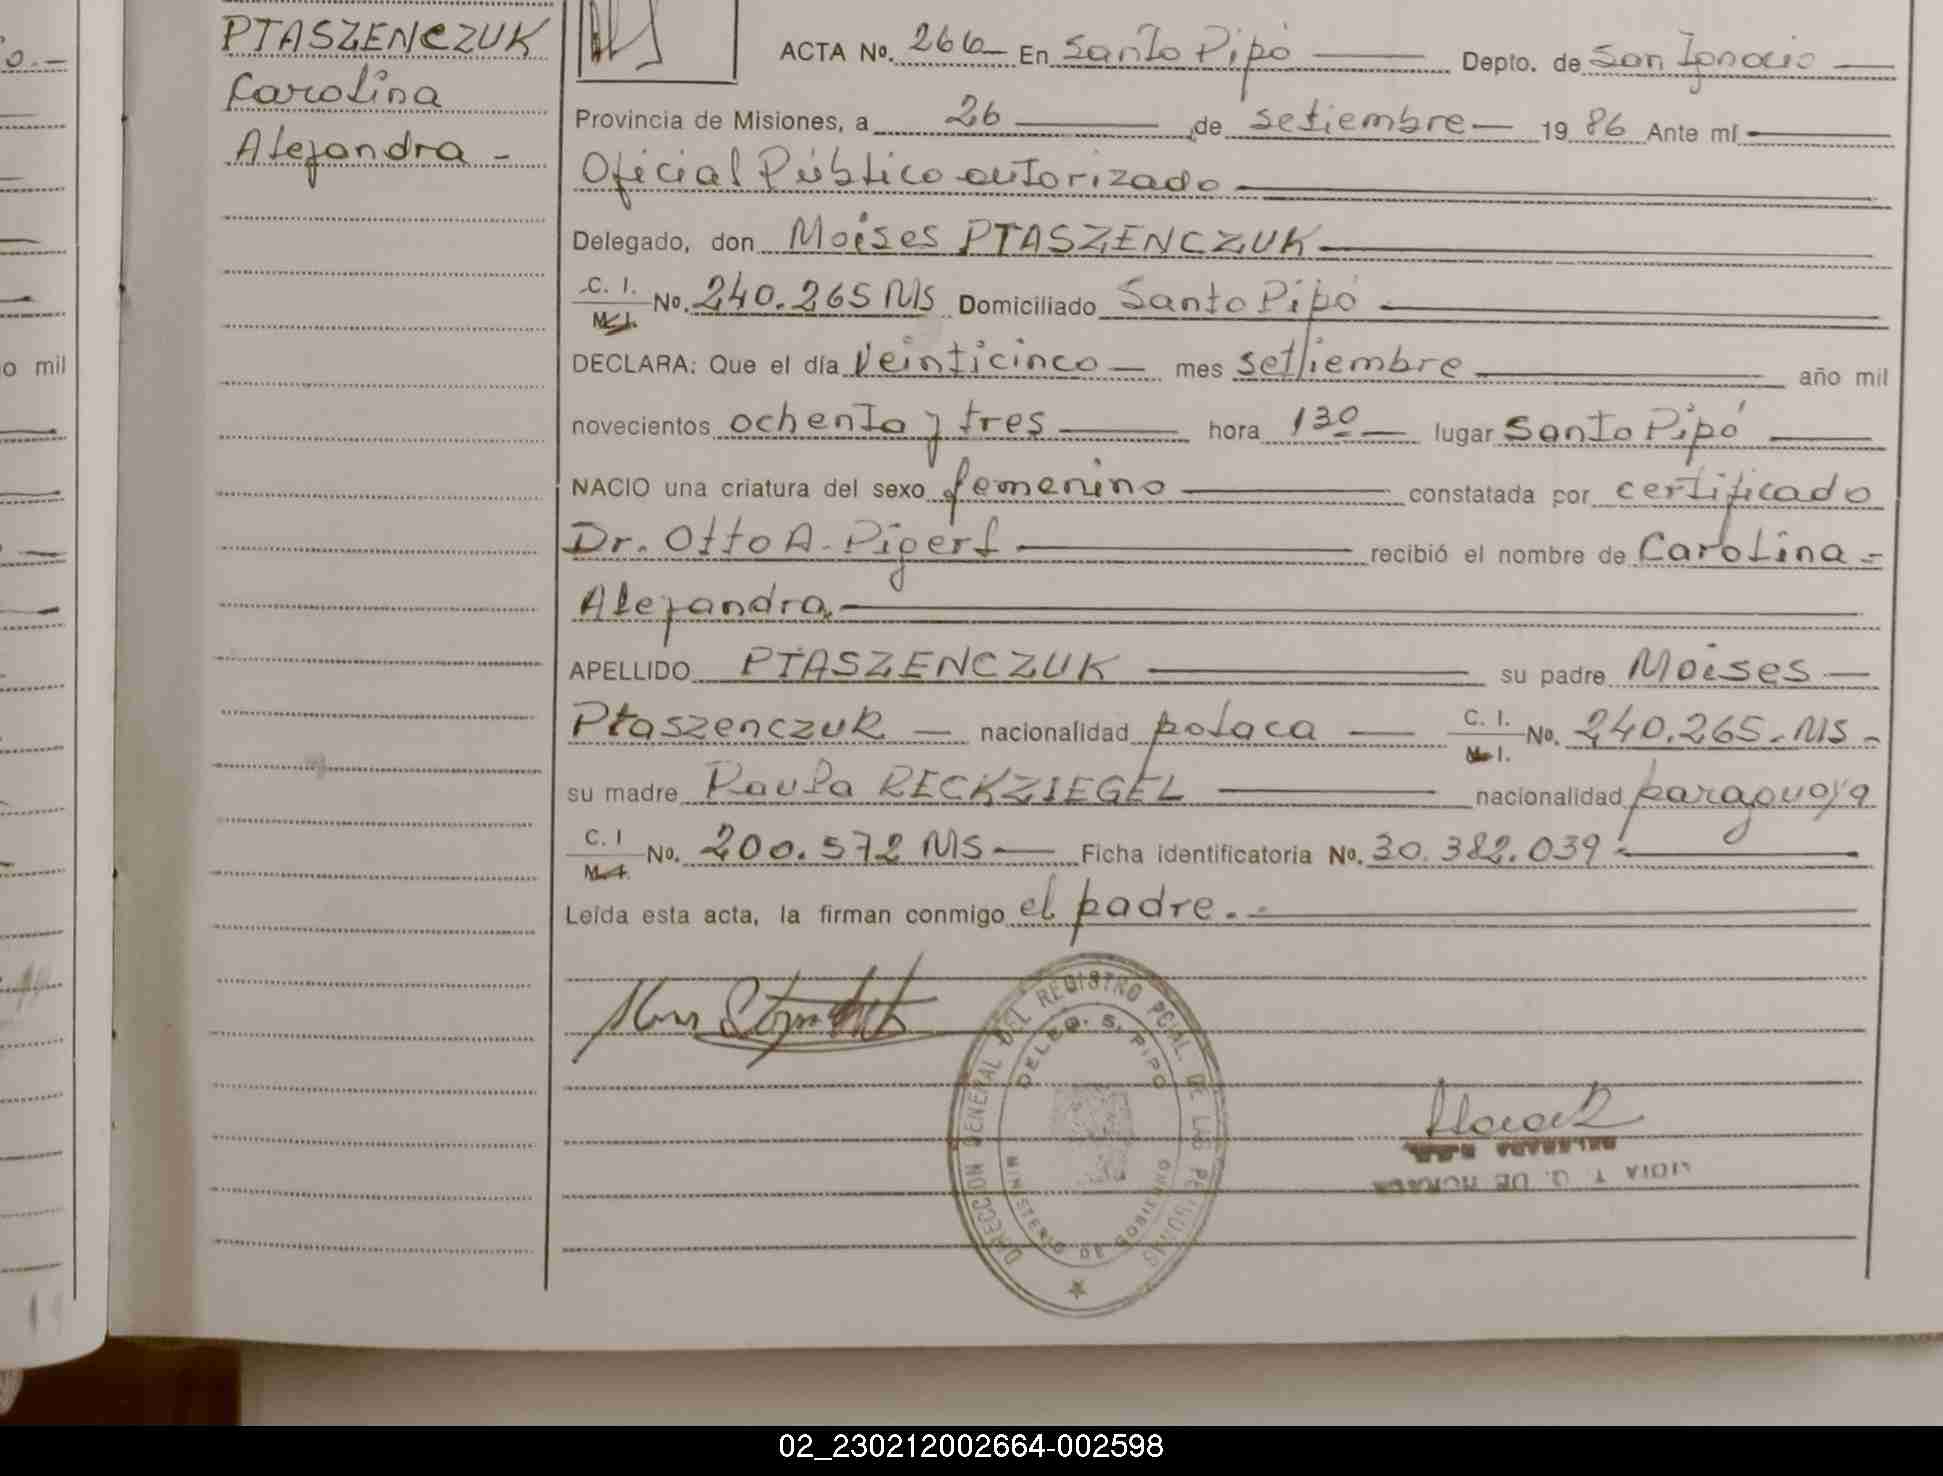 PTASZENCZUK
Carolina
Alejandra -
ACTA No. 266 En Santo Pipó Depto. de San Ignacio
Provincia de Misiones, a 26 de setiembre 19 86 Ante mí
Oficial Público autorizado
Delegado, don Moises PTASZENCZUK
C. I. No. 240.265 MS Domiciliado Santo Pipó
M. I.
DECLARA: Que el día veinticinco mes setiembre año mil
novecientos ochenta y tres hora 130 lugar Santo Pipó
NACIO una criatura del sexo femenino constatada por certificado
Dr. Otto A. Pigerl recibió el nombre de Carolina
Alejandra
APELLIDO PTASZENCZUK su padre Moises
Ptaszenczuk nacionalidad polaca C. I. No. 240.265 - MS -
M. I.
su madre Paula RECKZIEGEL nacionalidad paraguaya
C. I No. 200.572 MS Ficha identificatoria No. 30.382.039
M. I.
Leída esta acta, la firman conmigo el padre. -
DIRECCION GENERAL DEL REGISTRO PCIAL. DE LAS PERSONAS
DELEG. S. PIPO
MINISTERIO DE GOBIERNO
o mil
02_230212002664-002598